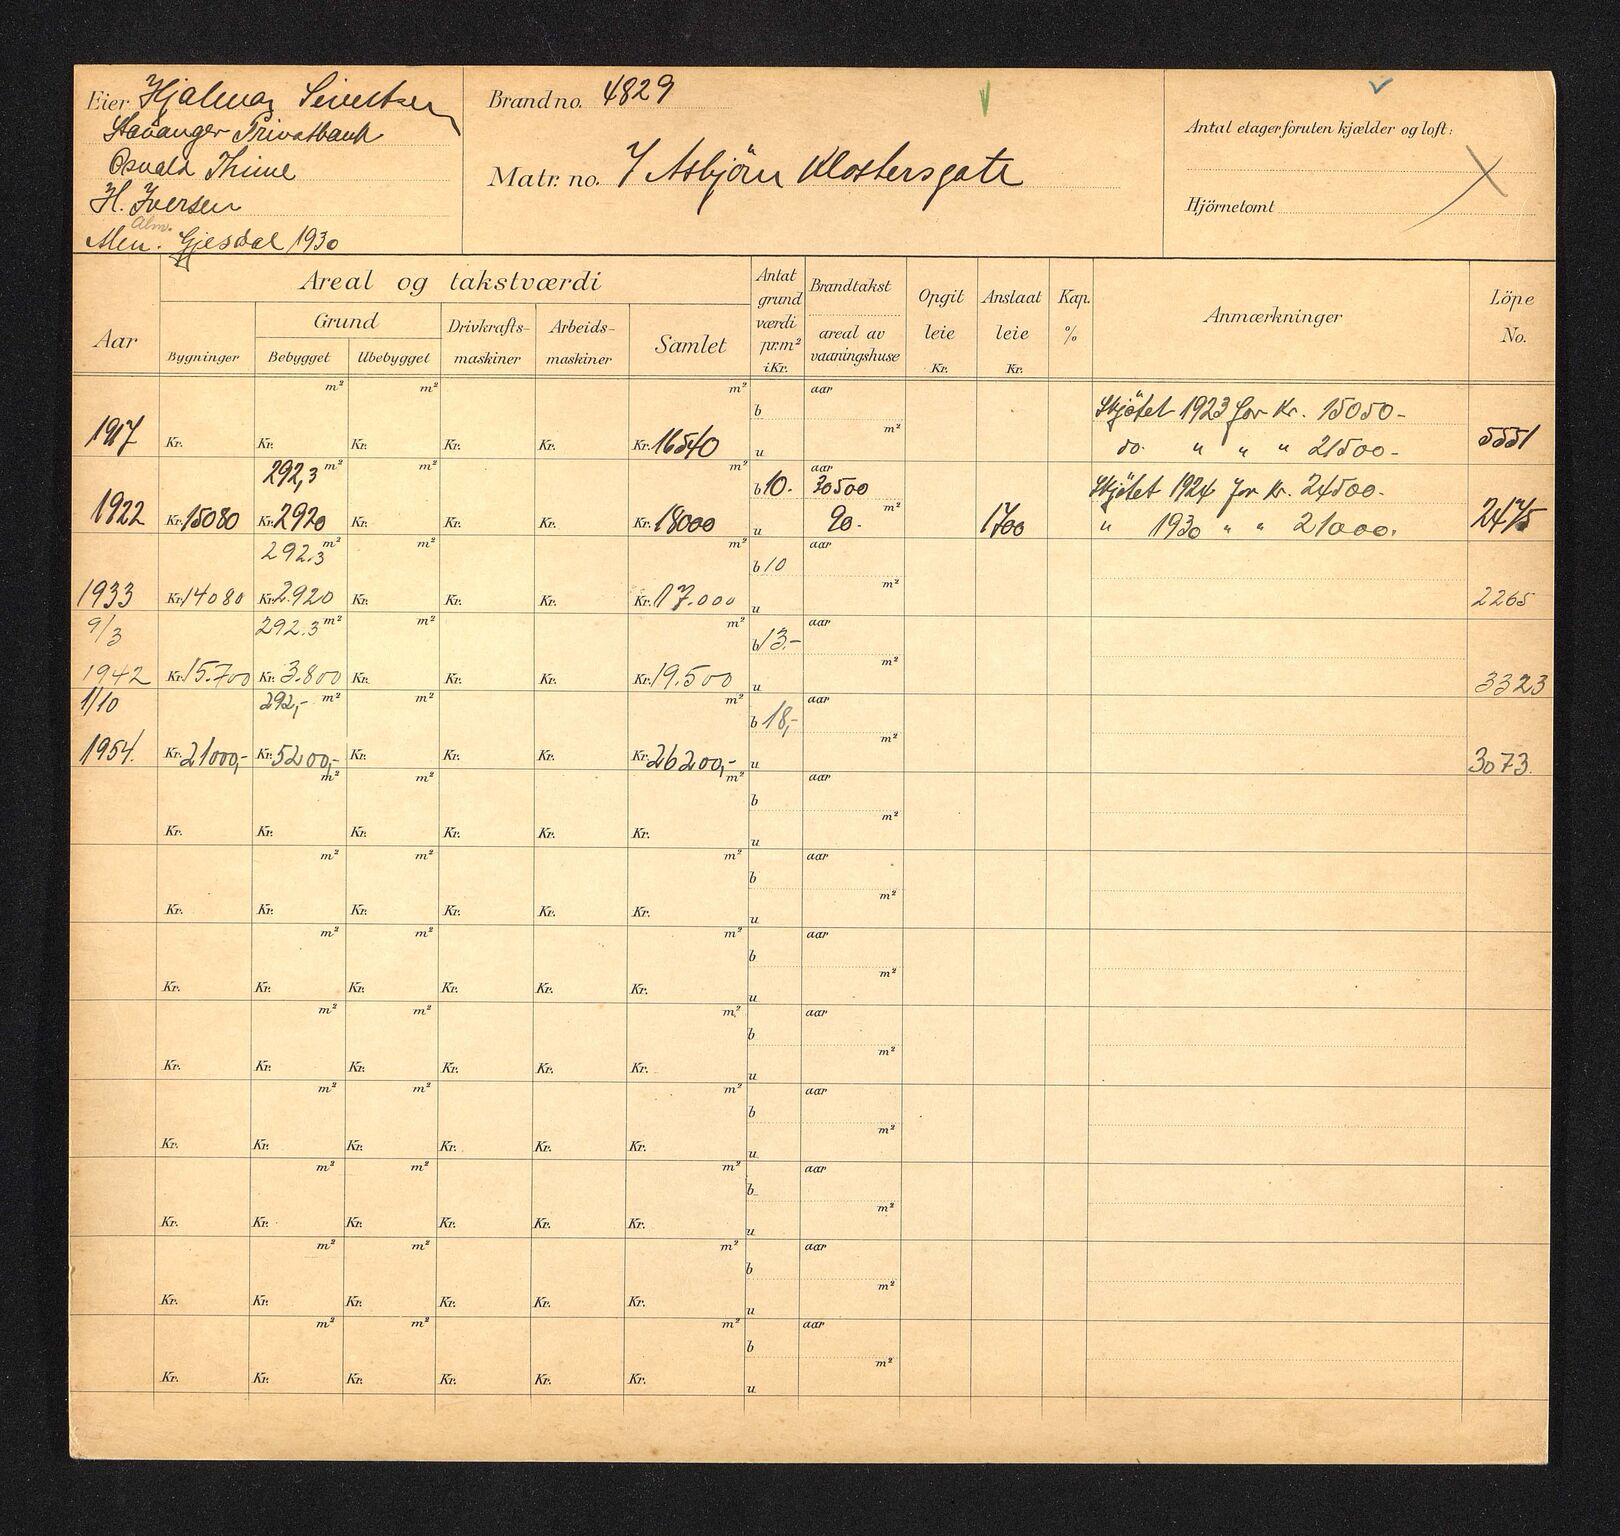 Eier Hjalmar Sivertsen
Stavanger Privatbank
Osvald Thime
H. Iversen
Alm.
Men. Gjesdal 1930
Brand no. 4829
Matr. no. 7 Asbjörn Klostersgate
Antal etager foruten kjælder og loft:
Hjörnetomt
Aar
Areal og takstværdi
Bygninger
Grund
Bebygget
Ubebygget
Drivkrafts-maskiner
Arbeids-maskiner
Samlet
Antat grund værdi pr.m² i Kr.
Brandtakst areal av vaaningshuse
Opgit leie Kr.
Anslaat leie Kr.
Kap. %
Anmærkninger
Löpe No.
m² m² m² b aar Skjötet 1923 for Kr. 15050-
1917 Kr. Kr. Kr. Kr. Kr. Kr. 16540 u m² do. " " " 21500- 5551
292,3 m² m² m² b 10. aar 30500 Skjötet 1924 for Kr. 24500.
1922 Kr. 15080 Kr. 2920 Kr. Kr. Kr. Kr. 18000 u 90. m² 1700 " 1930 " " 21000. 2475
292.3 m² m² m² b 10 aar
1933 Kr. 14080 Kr. 2.920 Kr. Kr. Kr. Kr. 17.000 u m² 2265
9/3 292.3 m² m² m² b 13.- aar
1942 Kr. 15.700 Kr. 3.800 Kr. Kr. Kr. Kr. 19.500 u m² 3323
1/10 292,- m² m² m² b 18,- aar
1954. Kr. 21000,- Kr. 5200,- Kr. Kr. Kr. Kr. 26200,- u m² 3073.
m² m² m² b aar
Kr. Kr. Kr. Kr. Kr. Kr. u m²
m² m² m² b aar
Kr. Kr. Kr. Kr. Kr. Kr. u m²
m² m² m² b aar
Kr. Kr. Kr. Kr. Kr. Kr. u m²
m² m² m² b aar
Kr. Kr. Kr. Kr. Kr. Kr. u m²
m² m² m² b aar
Kr. Kr. Kr. Kr. Kr. Kr. u m²
m² m² m² b aar
Kr. Kr. Kr. Kr. Kr. Kr. u m²
m² m² m² b aar
Kr. Kr. Kr. Kr. Kr. Kr. u m²
m² m² m² b aar
Kr. Kr. Kr. Kr. Kr. Kr. u m²